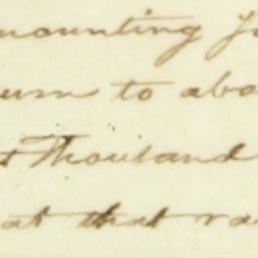 mounting fo
urn to abo
t Thousand
at that ra